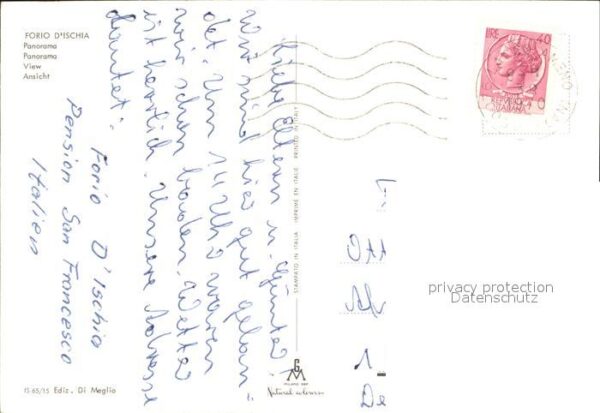 FORIO D'ISCHIA
Panorama
Panorama
View
Ansicht
Liebe Eltern u. Günter,
wir sind hier gut gelan-
det. Um 14 Uhr waren
wir schon baden. Wetter
ist herrlich. Unsere Adresse
lautet:
Forio D'Ischia
Pension San Francesco
Italien
STAMPATO IN ITALIA IMPRIMÉ EN ITALIE PRINTED IN ITALY
LIRE 40
REPVBBLICA
ITALIANA
Ott
1
De
privacy protection
Datenschutz
G
M
MILANO
Natural colours
IS-65/15 Ediz. Di Meglio